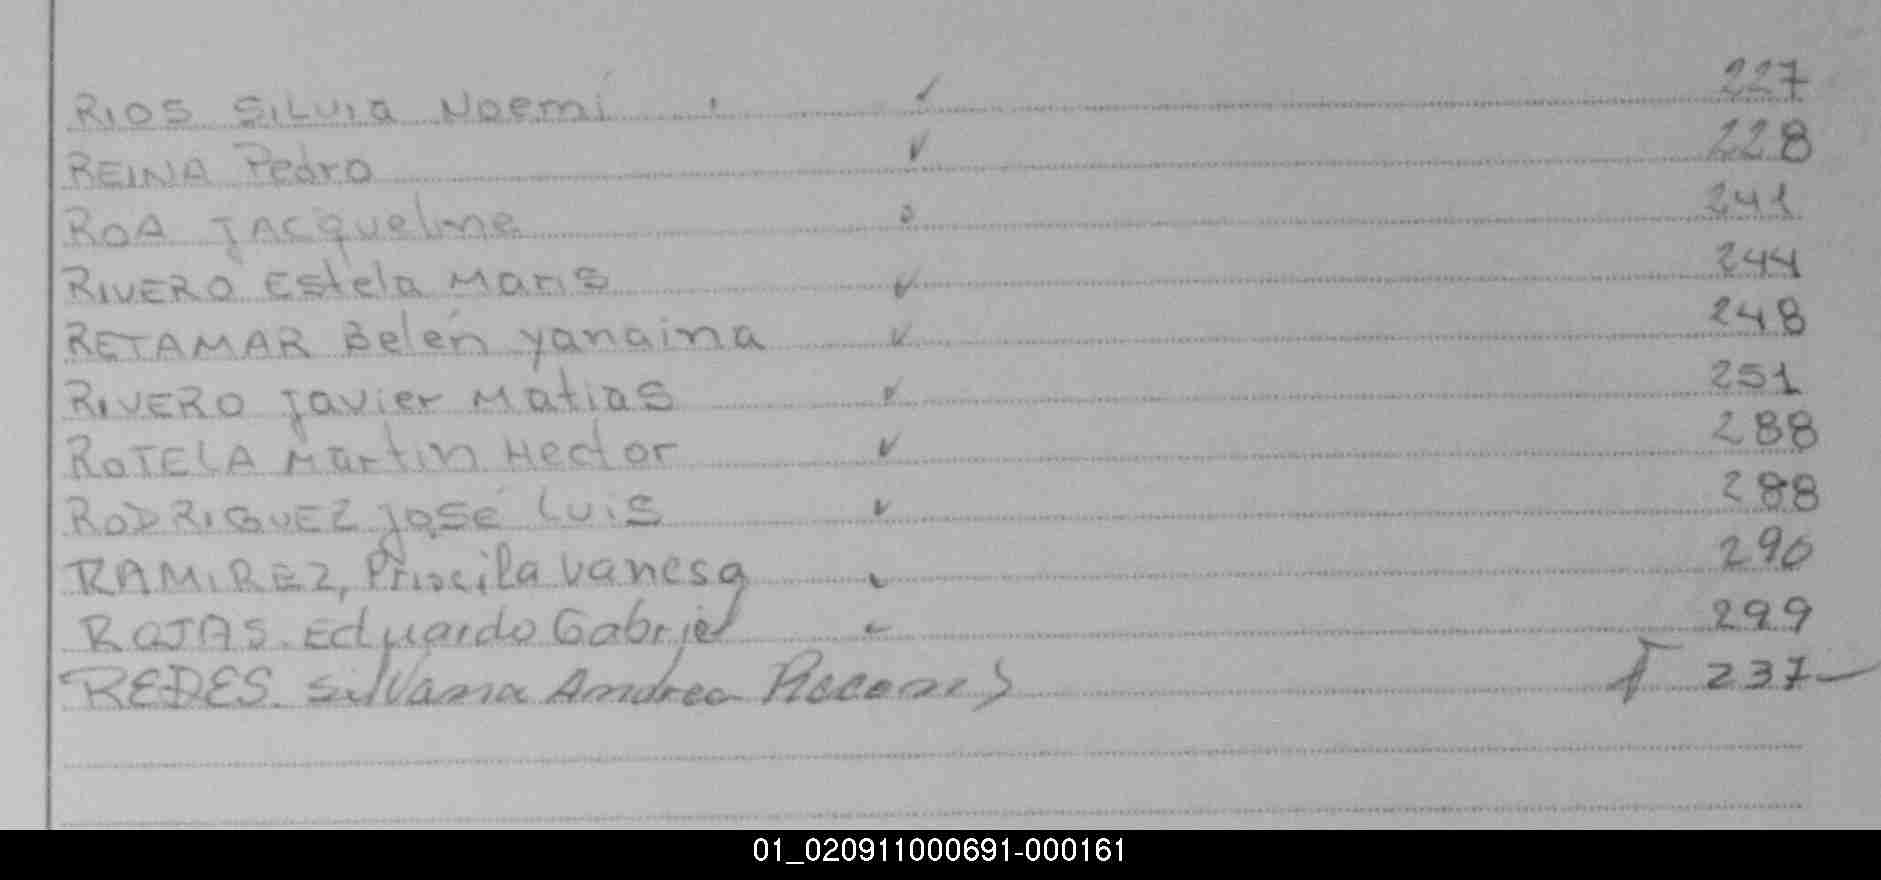 RIOS SILVIA Noemí ✓ 227
REINA Pedro ✓ 228
ROA JACqueline 241
RIVERO Estela Maris ✓ 244
RETAMAR Belén yanaina ✓ 248
RIVERO Javier Matias ✓ 251
ROTELA Martín Hector ✓ 288
RODRIGUEZ José Luis ✓ 288
RAMIREZ, Priscila vanesa ✓ 290
ROJAS. Eduardo Gabriel ✓ 299
REDES. Silvana Andrea 237
01_020911000691-000161